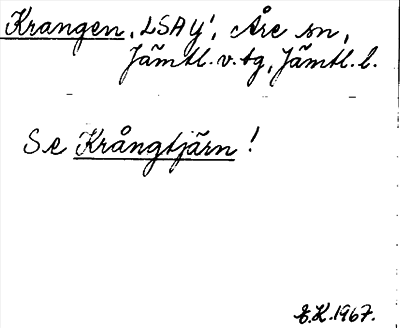 Krangen, LSAY', Åre sn,
Jämtl. v. tg, Jämtl. l.
Se Krångtjärn!
E.K. 1967.